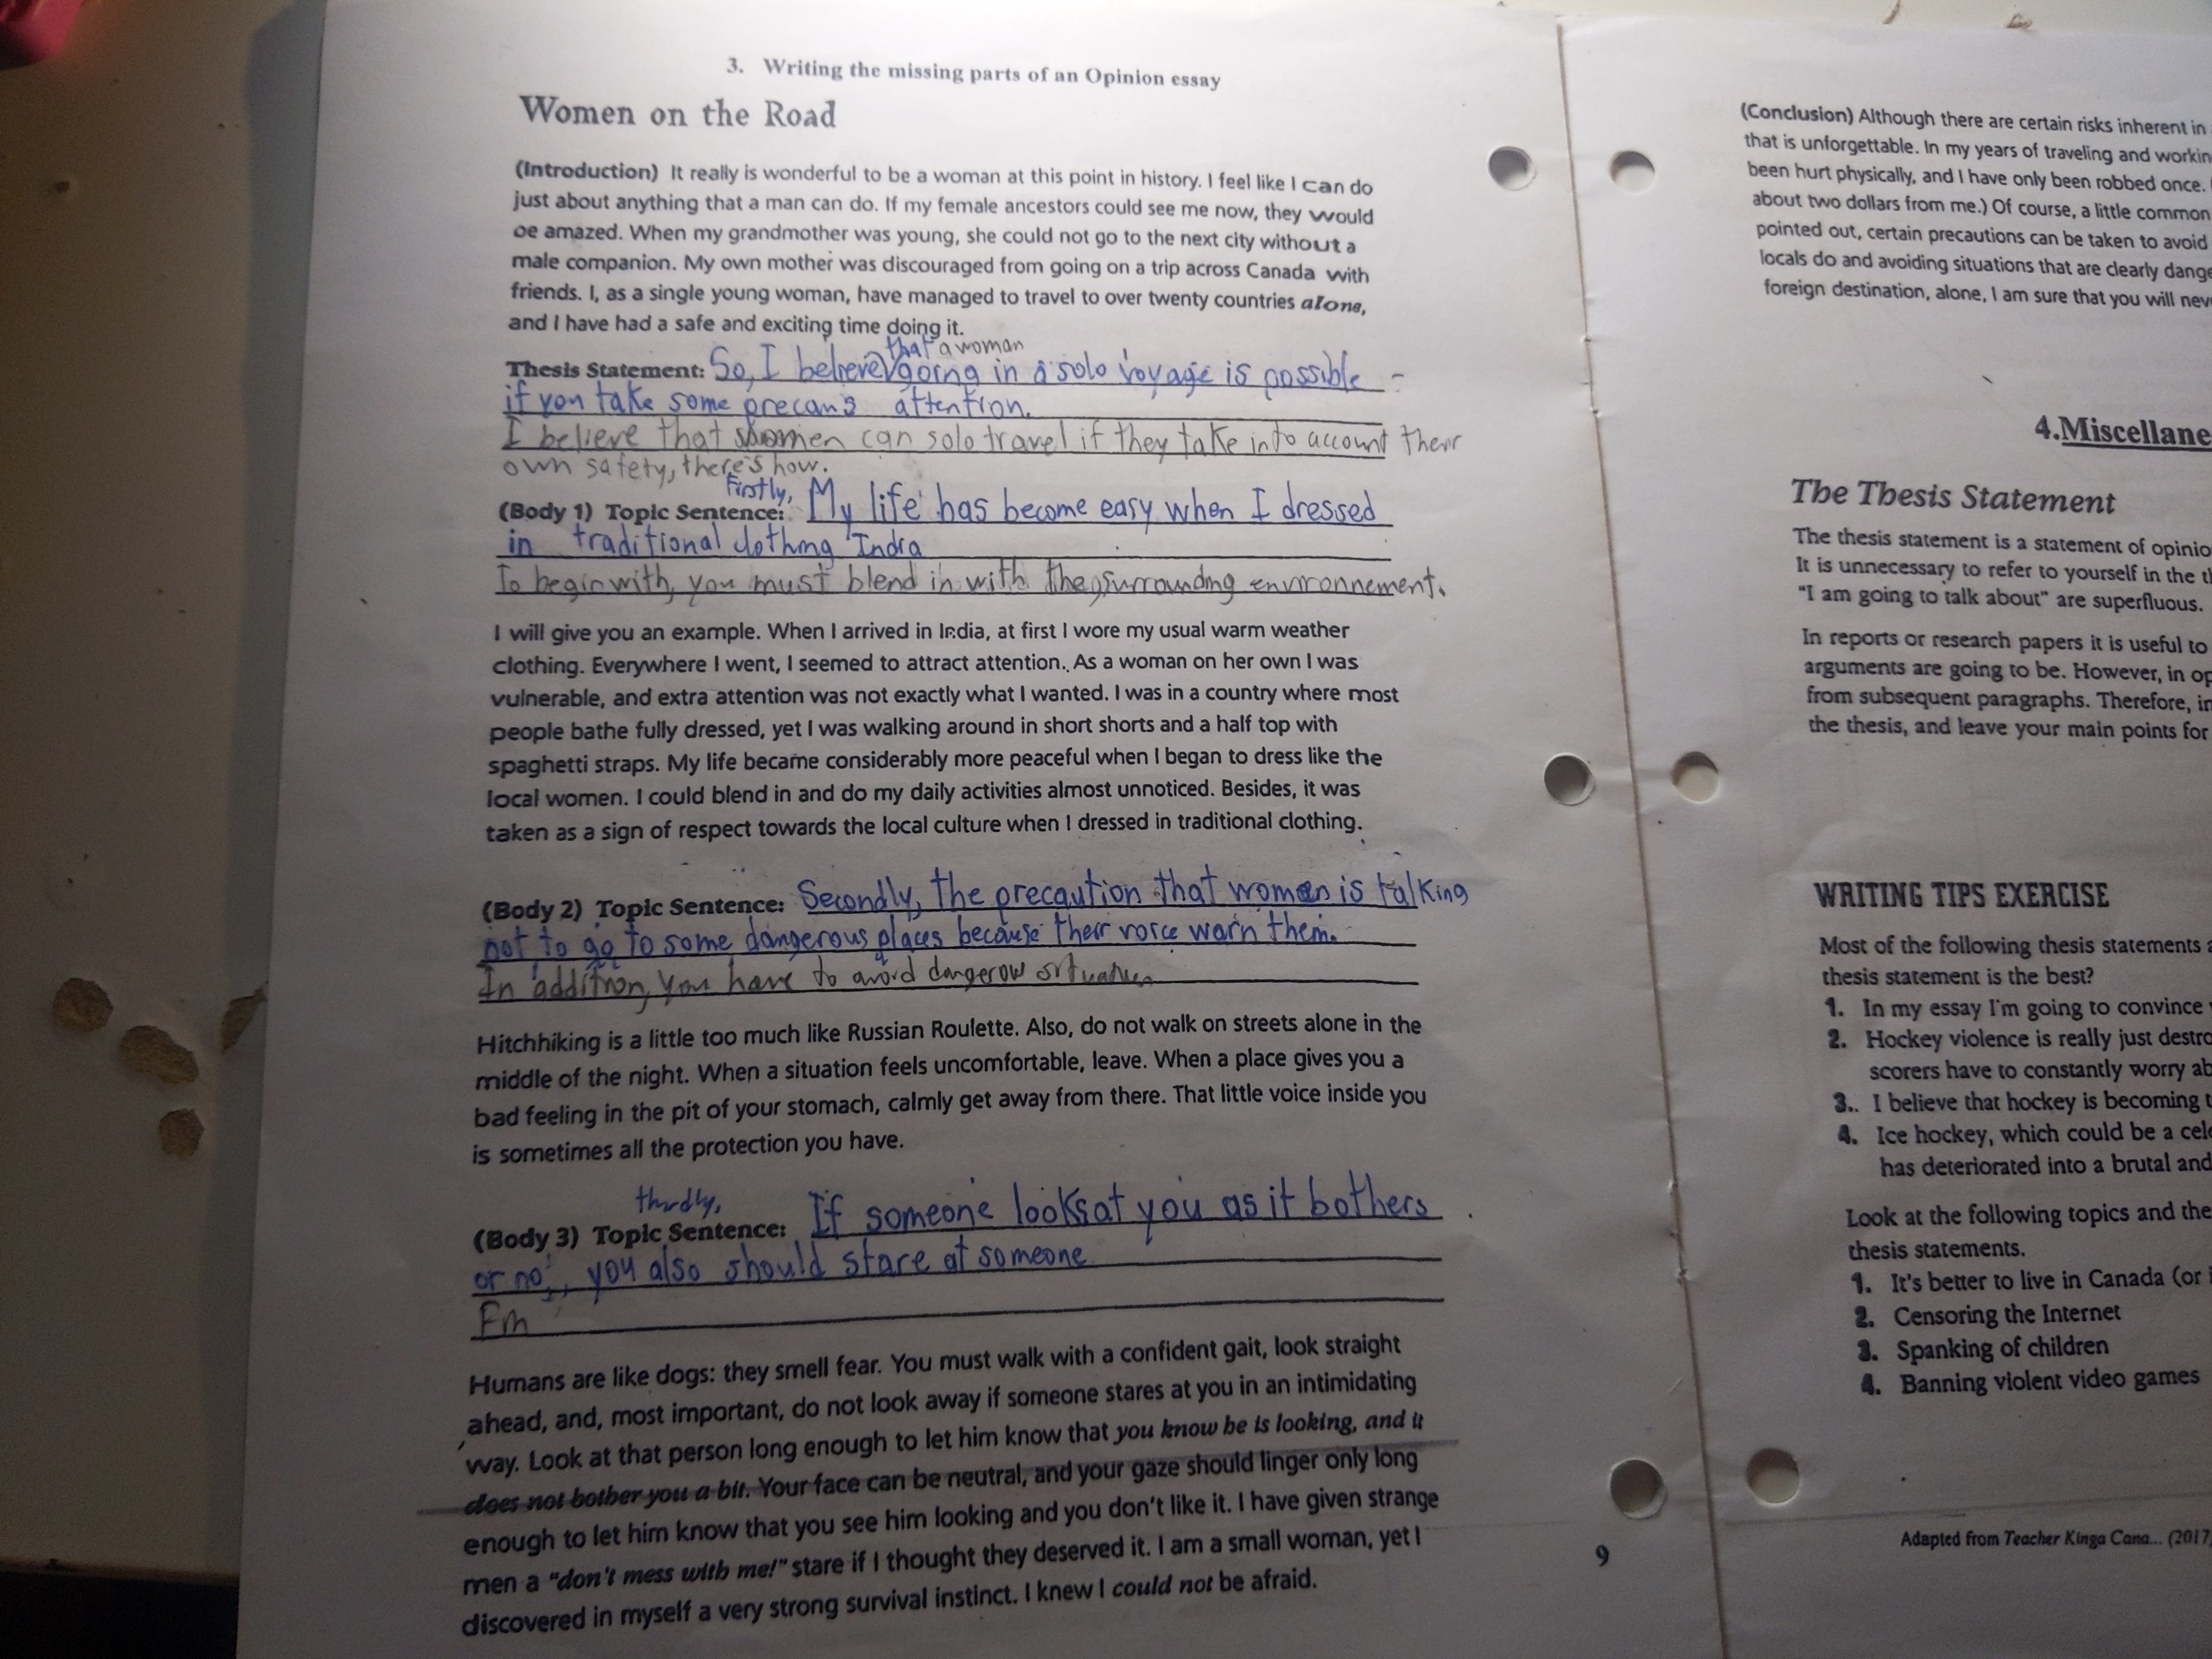 3. Writing the missing parts of an Opinion essay
Women on the Road
(Introduction) It really is wonderful to be a woman at this point in history. I feel like I can do
just about anything that a man can do. If my female ancestors could see me now, they would
be amazed. When my grandmother was young, she could not go to the next city without a
male companion. My own mother was discouraged from going on a trip across Canada with
friends. I, as a single young woman, have managed to travel to over twenty countries alone,
and I have had a safe and exciting time doing it.
that a woman
Thesis Statement: So, I believe going in a solo voyage is possible
if you take some precans attention.
I believe that women can solo travel if they take into account their
own safety, there's how.
Firstly,
(Body 1) Topic Sentence: My life has become easy when I dressed
in traditional clothing India
To begin with, you must blend in with the surrounding environnement.
I will give you an example. When I arrived in India, at first I wore my usual warm weather
clothing. Everywhere I went, I seemed to attract attention. As a woman on her own I was
vulnerable, and extra attention was not exactly what I wanted. I was in a country where most
people bathe fully dressed, yet I was walking around in short shorts and a half top with
spaghetti straps. My life became considerably more peaceful when I began to dress like the
local women. I could blend in and do my daily activities almost unnoticed. Besides, it was
taken as a sign of respect towards the local culture when I dressed in traditional clothing.
(Body 2) Topic Sentence: Secondly, the precaution that women is talking
not to go to some dangerous places because their voice warn them.
In addition, you have to avoid dangerous situation
Hitchhiking is a little too much like Russian Roulette. Also, do not walk on streets alone in the
middle of the night. When a situation feels uncomfortable, leave. When a place gives you a
bad feeling in the pit of your stomach, calmly get away from there. That little voice inside you
is sometimes all the protection you have.
thirdly,
(Body 3) Topic Sentence: If someone looks at you as it bothers
or no, you also should stare at someone
Fin
Humans are like dogs: they smell fear. You must walk with a confident gait, look straight
ahead, and, most important, do not look away if someone stares at you in an intimidating
way. Look at that person long enough to let him know that you know he is looking, and it
does not bother you a bit. Your face can be neutral, and your gaze should linger only long
enough to let him know that you see him looking and you don't like it. I have given strange
men a "don't mess with me!" stare if I thought they deserved it. I am a small woman, yet I
discovered in myself a very strong survival instinct. I knew I could not be afraid.
9
(Conclusion) Although there are certain risks inherent in
that is unforgettable. In my years of traveling and workin
been hurt physically, and I have only been robbed once.
about two dollars from me.) Of course, a little common
pointed out, certain precautions can be taken to avoid
locals do and avoiding situations that are clearly dange
foreign destination, alone, I am sure that you will nev
4.Miscellane
The Thesis Statement
The thesis statement is a statement of opinio
It is unnecessary to refer to yourself in the t
"I am going to talk about" are superfluous.
In reports or research papers it is useful to
arguments are going to be. However, in op
from subsequent paragraphs. Therefore, in
the thesis, and leave your main points for
WRITING TIPS EXERCISE
Most of the following thesis statements a
thesis statement is the best?
1. In my essay I'm going to convince
2. Hockey violence is really just destro
scorers have to constantly worry ab
3.. I believe that hockey is becoming t
4. Ice hockey, which could be a cele
has deteriorated into a brutal and
Look at the following topics and the
thesis statements.
1. It's better to live in Canada (or i
2. Censoring the Internet
3. Spanking of children
4. Banning violent video games
Adapted from Teacher Kinga Cana... (2017